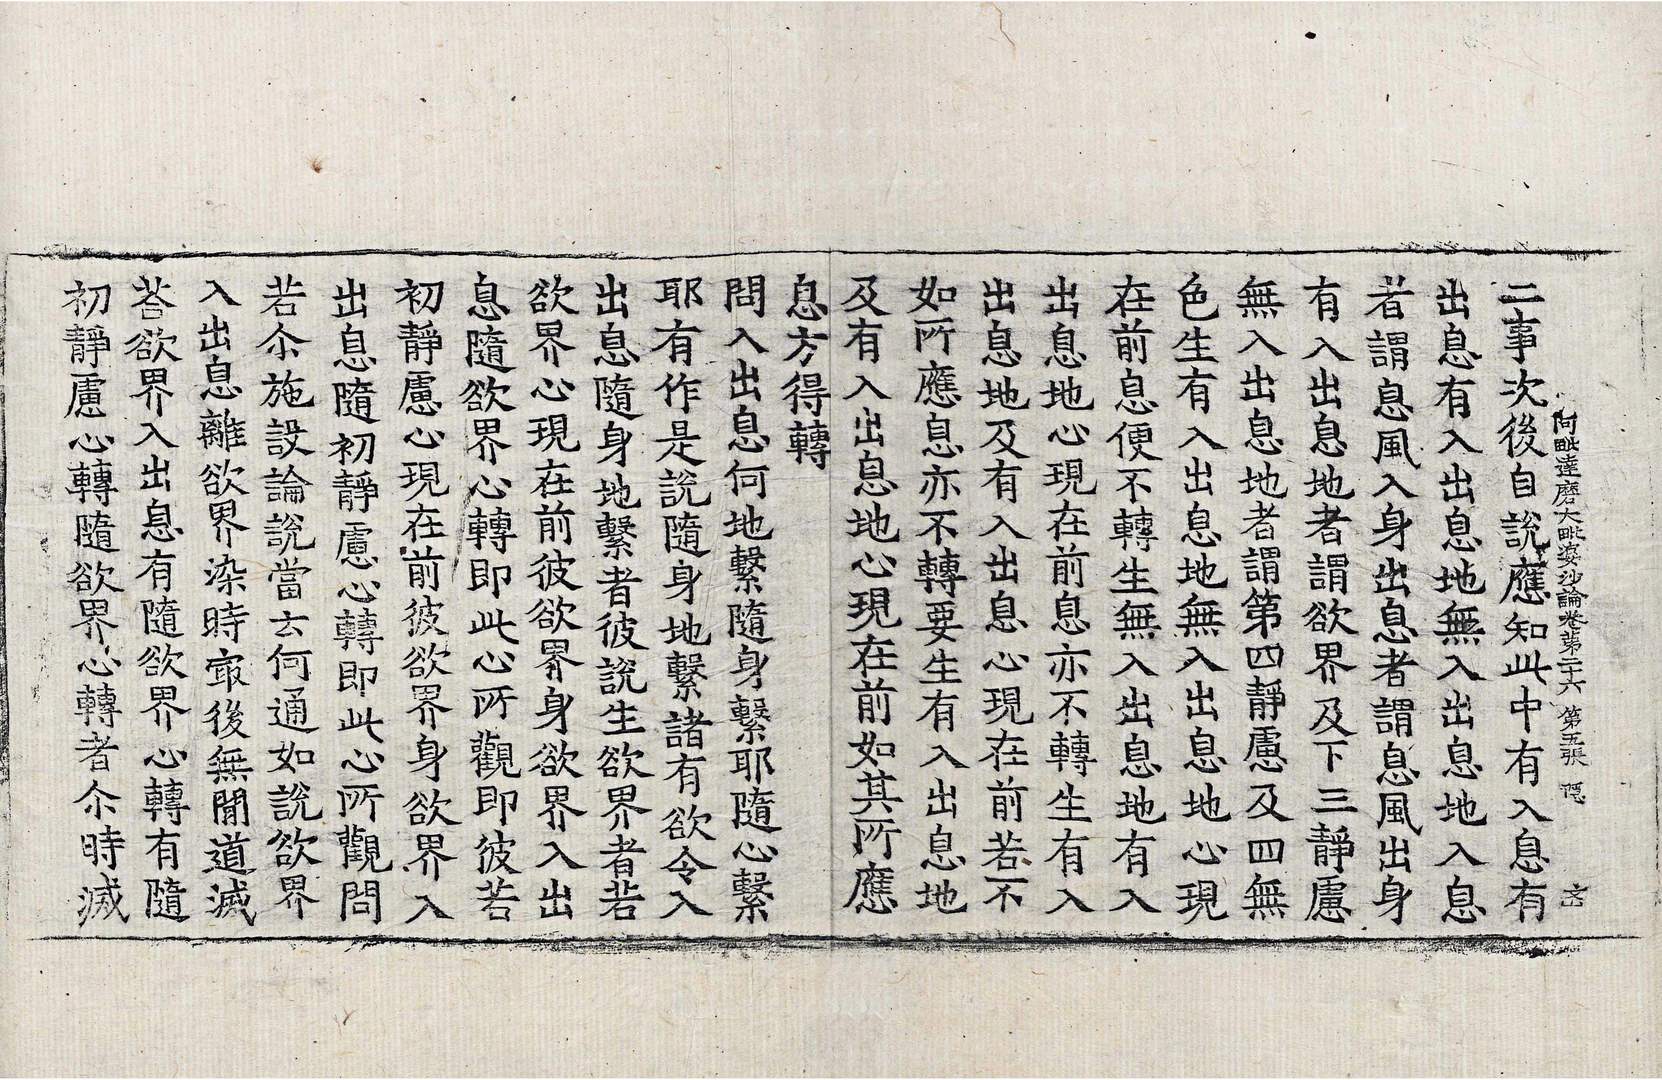 阿毗達磨大毗婆沙論卷第二十六 第五張
二事次後自說應知此中有入息有
出息有入出息地無入出息地入息
者謂息風入身出息者謂息風出身
有入出息地者謂欲界及下三靜慮
無入出息地者謂第四靜慮及四無
色生有入出息地無入出息地心現
在前息便不轉生無入出息地有入
出息地心現在前息亦不轉生有入
出息地及有入出息心現在前若不
如所應息亦不轉要生有入出息地
及有入出息地心現在前如其所應
息方得轉
問入出息何地繫隨身繫耶隨心繫
耶有作是說隨身地繫諸有欲令入
出息隨身地繫者彼說生欲界者若
欲界心現在前彼欲界身欲界入出
息隨欲界心轉即此心所觀即彼若
初靜慮心現在前彼欲界身欲界入
出息隨初靜慮心轉即此心所觀問
若尒施設論說當云何通如說欲界
入出息離欲界染時㝡後無閒道滅
荅欲界入出息有隨欲界心轉有隨
初靜慮心轉隨欲界心轉者尒時滅